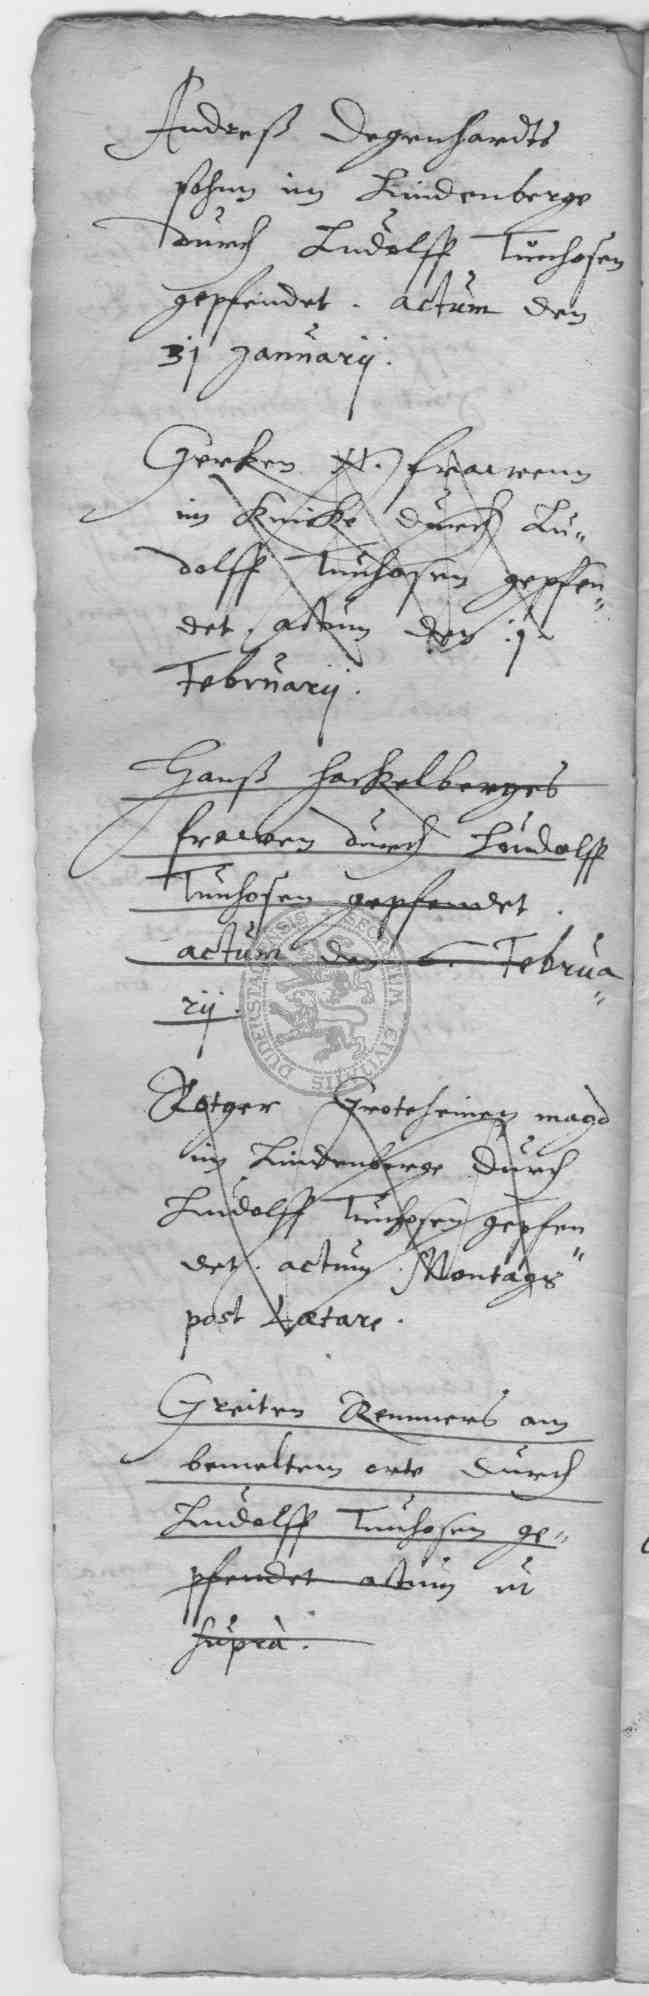 Andreß Degenhardts
sohnn im Lindenberge
durch Ludolff Tunhosen
gepfendet. actum den
31 Januarij.
Gerken N. frauwenn
im Knicke durch Lu„
dolff Tunhosen gepfen„
det. actum den 1.
Februarij.
Hanß Hackelberges
frawen durch Ludolff
Tunhosen gepfendet.
actum den 6. Februa„
rij.
Rotger Grotheinen magd
im Lindenberge durch
Ludolff Tunhosen gepfen„
det. actum Montags
post Lætare.
Greiten Remmers am
bemeltem orte durch
Ludolff Tunhosen ge„
pfendet actum ut
supra.
SECRETUM CIVITATIS DUDERSTADENSIS